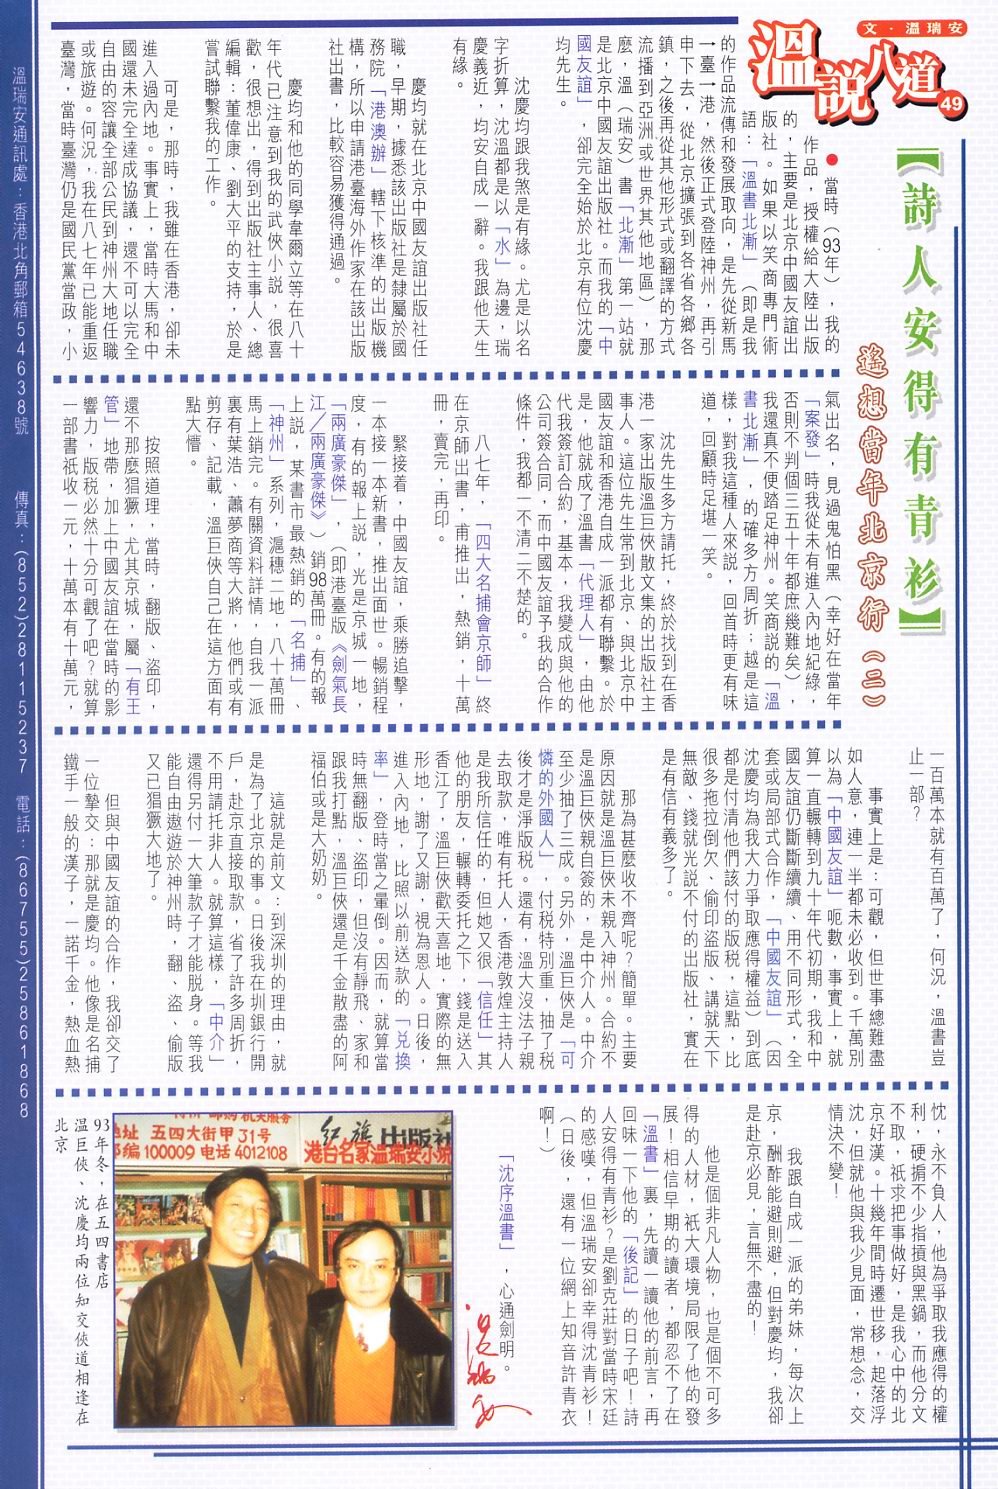 文·溫瑞安
溫說八道49
【詩人安得有青衫】
遙想當年北京行（二）
●當時（93年），我的
作品，授權給大陸出版
的，主要是北京中國友誼出
版社。如果以笑商專門術
語：「溫書北漸」（即是我
的作品流傳和發展取向，是先從新馬
→臺→港，然後正式登陸神州，再引
申下去，從北京擴張到各省各鄉各
鎮，之後再從其他形式或翻譯的方式
流播到亞洲或世界其他地區），那
麼，溫（瑞安）書「北漸」第一站就
是北京中國友誼出版社。而我的「中
國友誼」，卻完全始於北京有位沈慶
均先生。
沈慶均跟我煞是有緣。尤是以名
字折算，沈溫都是以「水」為邊，瑞
慶義近，均安自成一辭。我跟他天生
有緣。
慶均就在北京中國友誼出版社任
職，早期，據悉該出版社是隸屬於國
務院「港澳辦」轄下核準的出版機
構，所以申請港臺海外作家在該出版
社出書，比較容易獲得通過。
慶均和他的同學韋爾立等在八十
年代已注意到我的武俠小說，很喜
歡，很想出，得到出版社主事人、總
編輯：董偉康、劉大平的支持，於是
嘗試聯繫我的工作。
可是，那時，我雖在香港，卻未
進入過內地。事實上，當時大馬和中
國還未完全達成協議，還不可以完全
自由的容讓全部公民到神州大地任職
或旅遊。何況，我在八七年已能重返
臺灣，當時臺灣仍是國民黨當政，小
氣出名，見過鬼怕黑（幸好在當年
「案發」時我從未有進入內地紀綠，
否則不判個三五十年都庶幾難矣），
我還真不便踏足神州。笑商說的「溫
書北漸」，的確多方周折；越是這
樣，對我這種人來說，回首時更有味
道，回顧時足堪一笑。
沈先生多方請托，終於找到在香
港一家出版溫巨俠散文集的出版社主
事人。這位先生常到北京、與北京中
國友誼和香港自成一派都有聯繫。於
是，他就成了溫書「代理人」，由他
代我簽訂合約，基本，我變成與他的
公司簽合同，而中國友誼予我的合作
條件，我都一不清二不楚的。
八七年，「四大名捕會京師」終
在京師出書，甫推出，熱銷，十萬
冊，賣完，再印。
緊接着，中國友誼，乘勝追擊，
一本接一本新書，推出面世。暢銷程
度，有的報上說，光是京城一地，
「兩廣豪傑」，（即港臺版《劍氣長
江／兩廣豪傑》）銷98萬冊。有的報
上說，某書市最熱銷的「名捕」、
「神州」系列，滬穗二地，八十萬冊
馬上銷完。有關資料詳情，自我一派
裏有葉浩、蕭夢商等大將，他們或有
剪存、記載，溫巨俠自己在這方面有
點大懵。
按照道理，當時，翻版、盜印，
還不那麼猖獗，尤其京城，屬「有王
管」地帶，加上中國友誼在當時的影
響力，版稅必然十分可觀了吧？就算
一部書祇收一元，十萬本有十萬元，
一百萬本就有百萬了，何況，溫書豈
止一部？
事實上是：可觀，但世事總難盡
如人意，連一半都未必收到。千萬別
以為「中國友誼」呃數，事實上，就
算一直輾轉到九十年代初期，我和中
國友誼仍斷斷續續、用不同形式，全
套或局部式合作，「中國友誼」（因
沈慶均為我大力爭取應得權益）到底
都是付清他們該付的版稅，這點，比
很多拖拉倒欠、偷印盜版、講就天下
無敵、錢就光説不付的出版社，實在
是有信有義多了。
那為甚麼收不齊呢？簡單。主要
原因就是溫巨俠未親入神州。合約不
是溫巨俠親自簽的，是中介人。中介
至少抽了三成。另外，溫巨俠是「可
憐的外國人」，付稅特別重，抽了稅
後才是淨版稅。還有，溫大沒法子親
去取款，唯有托人，香港敦煌主持人
是我所信任的，但她又很「信任」其
他的朋友，輾轉委托之下，錢是送入
香江了，溫巨俠歡天喜地，實際的無
形地，謝了又謝，視為恩人。日後，
進入內地，比照以前送款的「兌換
率」，登時當之暈倒。因而，就算當
時無翻版、盜印，但沒有靜飛、家和
跟我打點，溫巨俠還是千金散盡的阿
福伯或是大奶奶。
這就是前文：到深圳的理由，就
是為了北京的事。日後我在圳銀行開
戶，赴京直接取款，省了許多周折，
不用請托非人。就算這樣，「中介」
還得另付一大筆款子才能脫身。等我
能自由遨遊於神州時，翻、盜、偷版
又已猖獗大地了。
但與中國友誼的合作，我卻交了
一位摯交：那就是慶均。他像是名捕
鐵手一般的漢子，一諾千金，熱血熱
忱，永不負人，他為爭取我應得的權
利，硬搧不少指摃與黑鍋，而他分文
不取，祇求把事做好，是我心中的北
京好漢。十幾年間時遷世移，起落浮
沈，但就他與我少見面，常想念，交
情決不變！
我跟自成一派的弟妹，每次上
京，酬酢能避則避，但對慶均，我卻
是赴京必見，言無不盡的！
他是個非凡人物，也是個不可多
得的人材，祇大環境局限了他的發
展！相信早期的讀者，都忍不了在
「溫書」裏，先讀一讀他的前言，再
回味一下他的「後記」的日子吧！詩
人安得有青衫？是劉克莊對當時宋廷
的感嘆，但溫瑞安卻幸得沈青衫！
（日後，還有一位網上知音許青衣
啊！）
「沈序溫書」，心通劍明。
93年冬，在五四書店
溫巨俠、沈慶均兩位知交俠道相逢在
北京
郵购 机关服务
地址 五四大街甲31号
邮编 100009 电话 4012108
红旗出版社
港台名家温瑞安小
溫瑞安通訊處：香港北角郵箱54638號 傳真：(852)28115237 電話：(86755)25861868